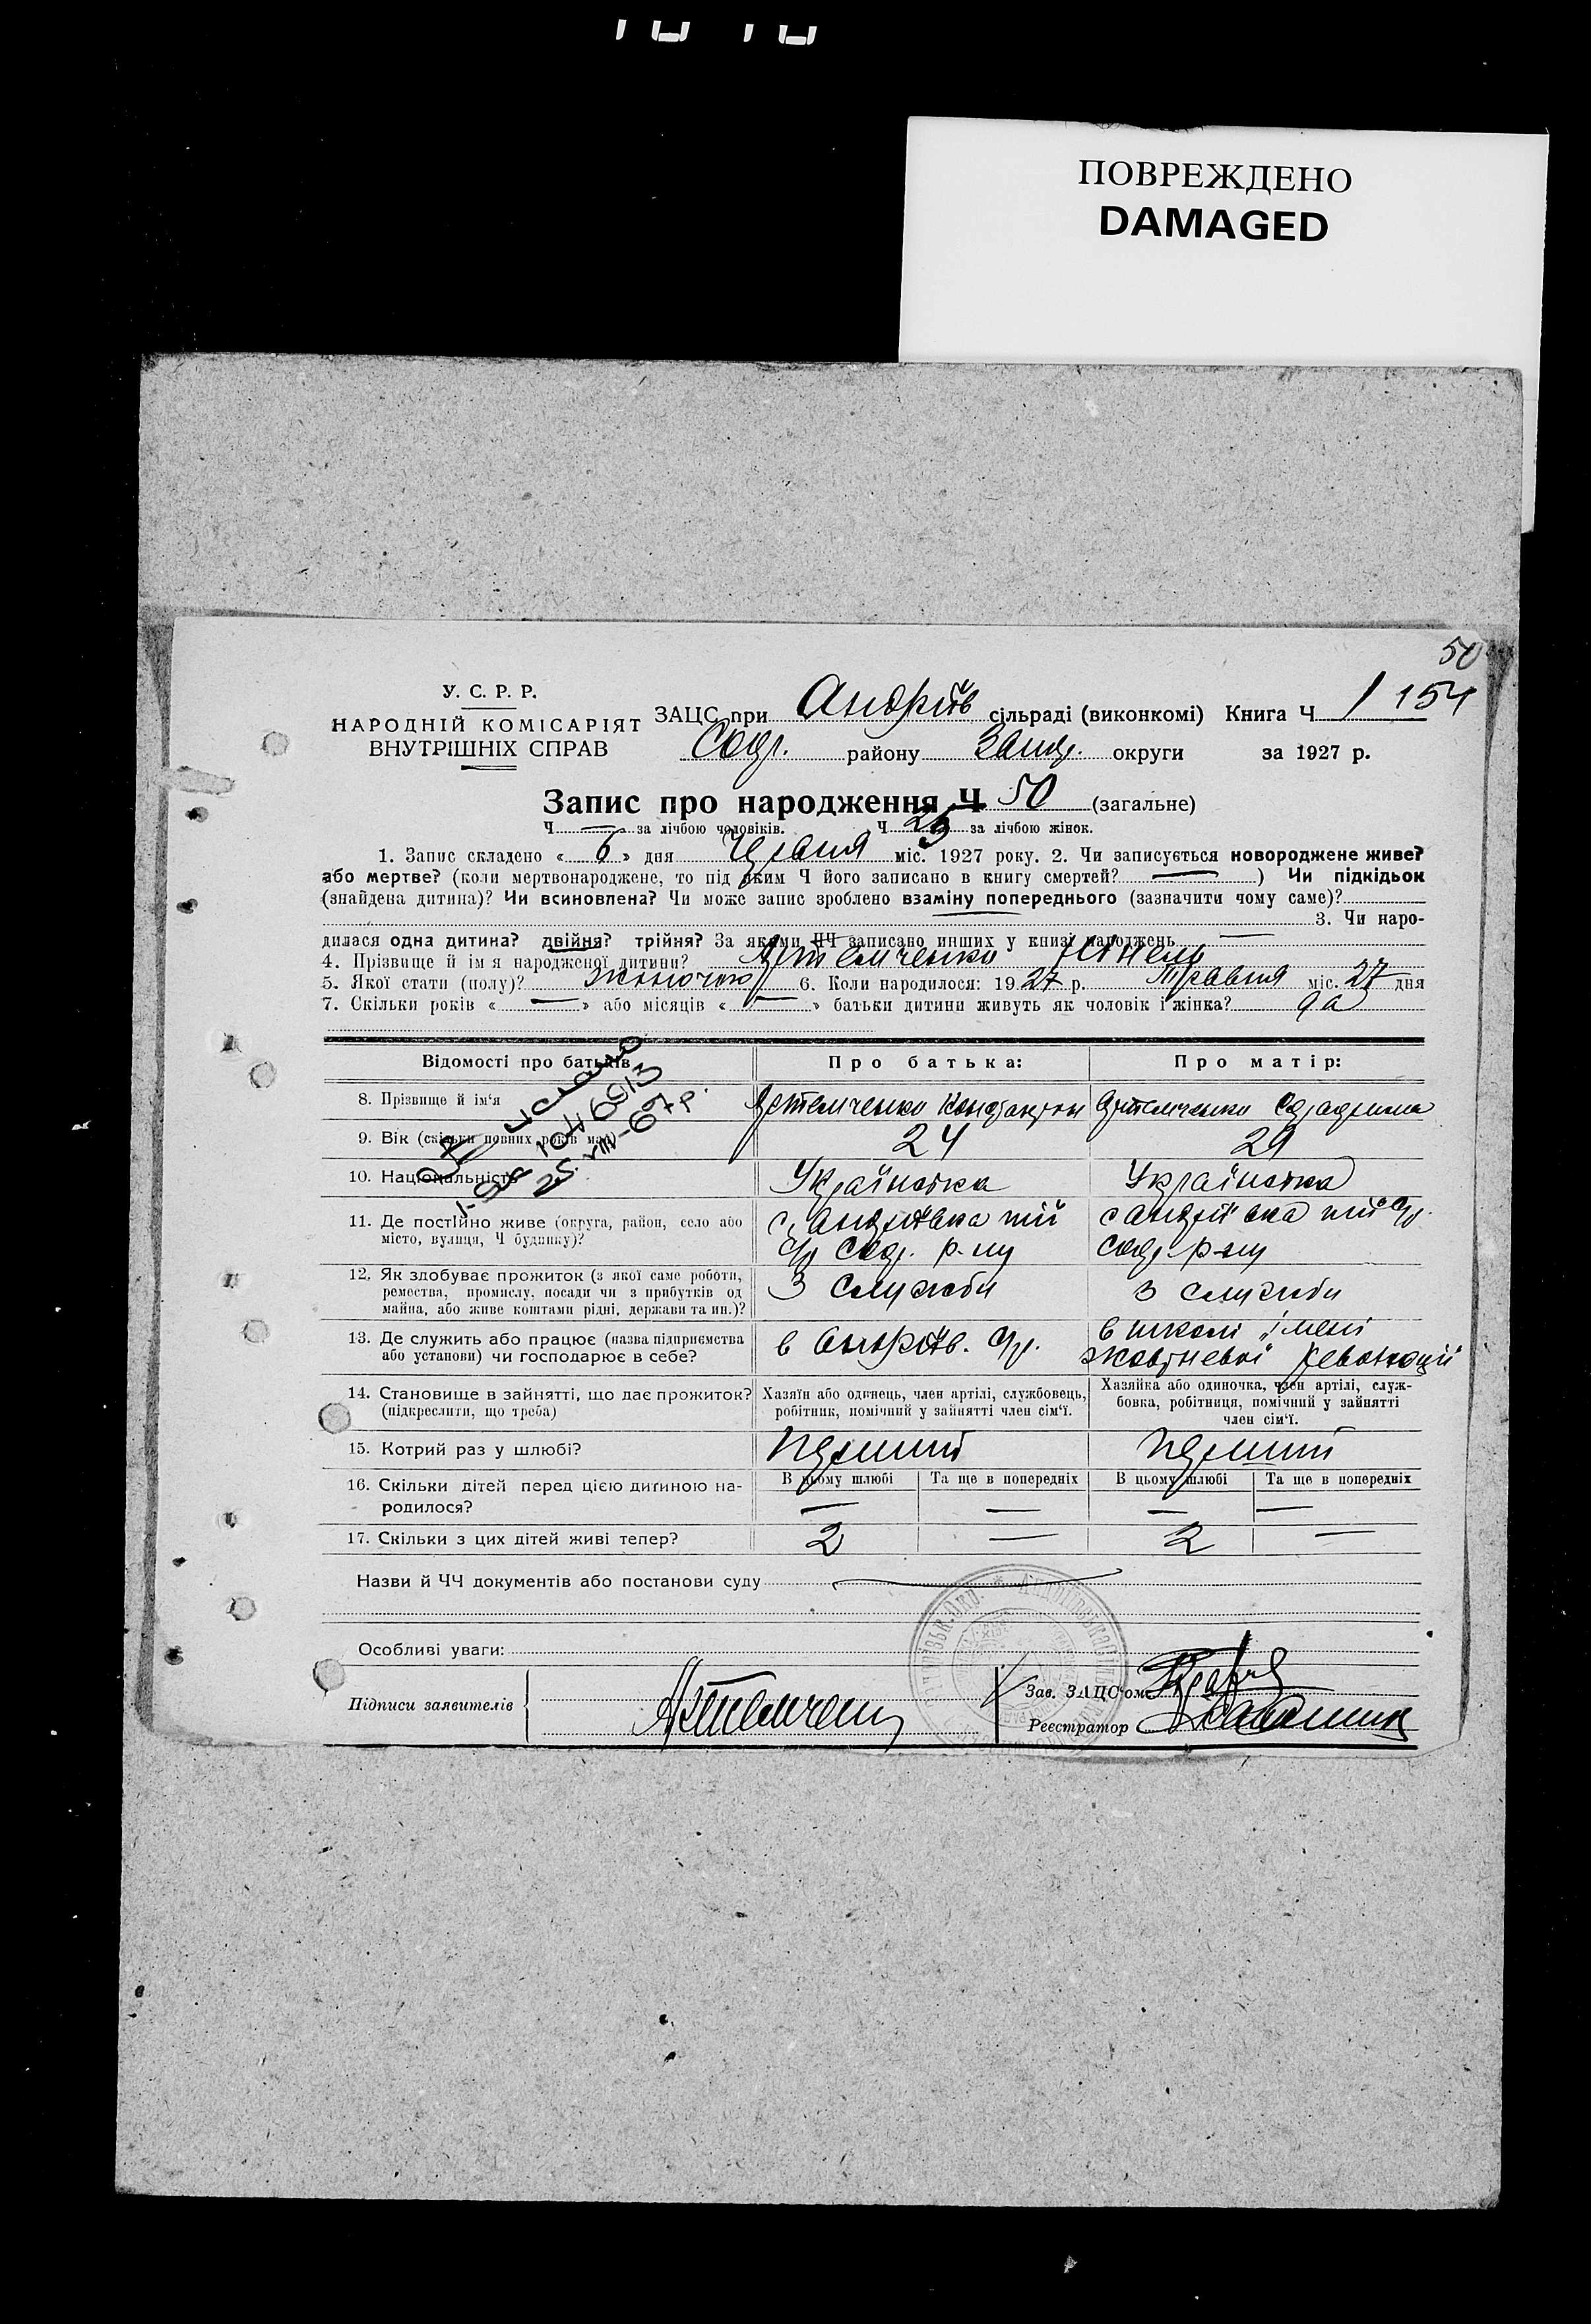 ПОВРЕЖДЕНО
DAMAGED
50
У. С. Р. Р.
НАРОДНІЙ КОМІСАРІЯТ
ВНУТРІШНІХ СПРАВ
ЗАЦС при Андріїв сільраді (виконкомі) Книга Ч 1 154
району округи за 1927 р.
Запис про народження Ч 50 (загальне)
Ч — за лічбою чоловіків. Ч 25 за лічбою жінок.
1. Запис складено « 6 » дня Червня міс. 1927 року. 2. Чи записується новороджене живе?
або мертве? (коли мертвонароджене, то під яким Ч його записано в книгу смертей? —) Чи підкідьок
(знайдена дитина)? Чи всиновлена? Чи може запис зроблено взаміну попереднього (зазначити чому саме)?
3. Чи наро-
дилася одна дитина? двійня? трійня? За якими ЧЧ записано инших у книзі народжень —
4. Прізвище й ім'я народженої дитини? Артемченко Нінель
5. Якої стати (полу)? жіночою 6. Коли народилося: 1927 р. Травня міс. 27 дня
7. Скільки років « — » або місяців « — » батьки дитини живуть як чоловік і жінка?
Відомості про батьків
Про батька:
Про матір:
8. Прізвище й ім'я
Артемченко
Артемченко
9. Вік (скільки повних років має)
24
29
10. Національність
Українська
Українська
11. Де постійно живе (округа, район, село або
місто, вулиця, Ч будинку)?
с. Андріївка тій
с/р р-ну
с Андріївка тій с/р.
р-ну
12. Як здобуває прожиток (з якої саме роботи,
ремества, промислу, посади чи з прибутків од
майна, або живе коштами рідні, держави та ин.)?
З служби
З служби
13. Де служить або працює (назва підприємства
або установи) чи господарює в себе?
в Андріїв. с/р.
в школі „імені
Жовтневої революції
14. Становище в зайнятті, що дає прожиток?
(підкреслити, що треба)
Хазяїн або одинець, член артілі, службовець,
робітник, помічний у зайнятті член сім'ї.
Хазяйка або одиночка, член артілі, служ-
бовка, робітниця, помічний у зайнятті
член сім'ї.
15. Котрий раз у шлюбі?
перший
перший
16. Скільки дітей перед цією дитиною на-
родилося?
В цьому шлюбі
Та ще в попередніх
В цьому шлюбі
Та ще в попередніх
— — — —
17. Скільки з цих дітей живі тепер?
2 — 2 —
Назви й ЧЧ документів або постанови суду
Особливі уваги:
Підписи заявителів
Артемченко
Зав. ЗАЦС'ом
Реєстратор